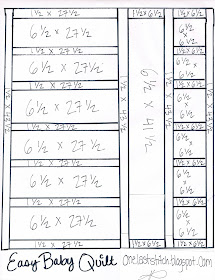 1½ x 27½
6½ x 27½
1½ x 27½
6½ x 27½
1½ x 27½
6½ x 27½
1½ x 27½
6½ x 27½
1½ x 27½
6½ x 27½
1½ x 27½
6½ x 27½
1½ x 27½
1½ x 43½
1½ x 43½
1½ x 6½
6½ x 41½
1½ x 6½
1½ x 43½
1½ x 6½
6½ x 6½
1½ x 6½
6½ x 6½
1½ x 6½
6½ x 6½
1½ x 6½
6½ x 6½
1½ x 6½
6½ x 6½
1½ x 6½
6½ x 6½
1½ x 6½
Easy Baby Quilt
onelaststitch.blogspot.com